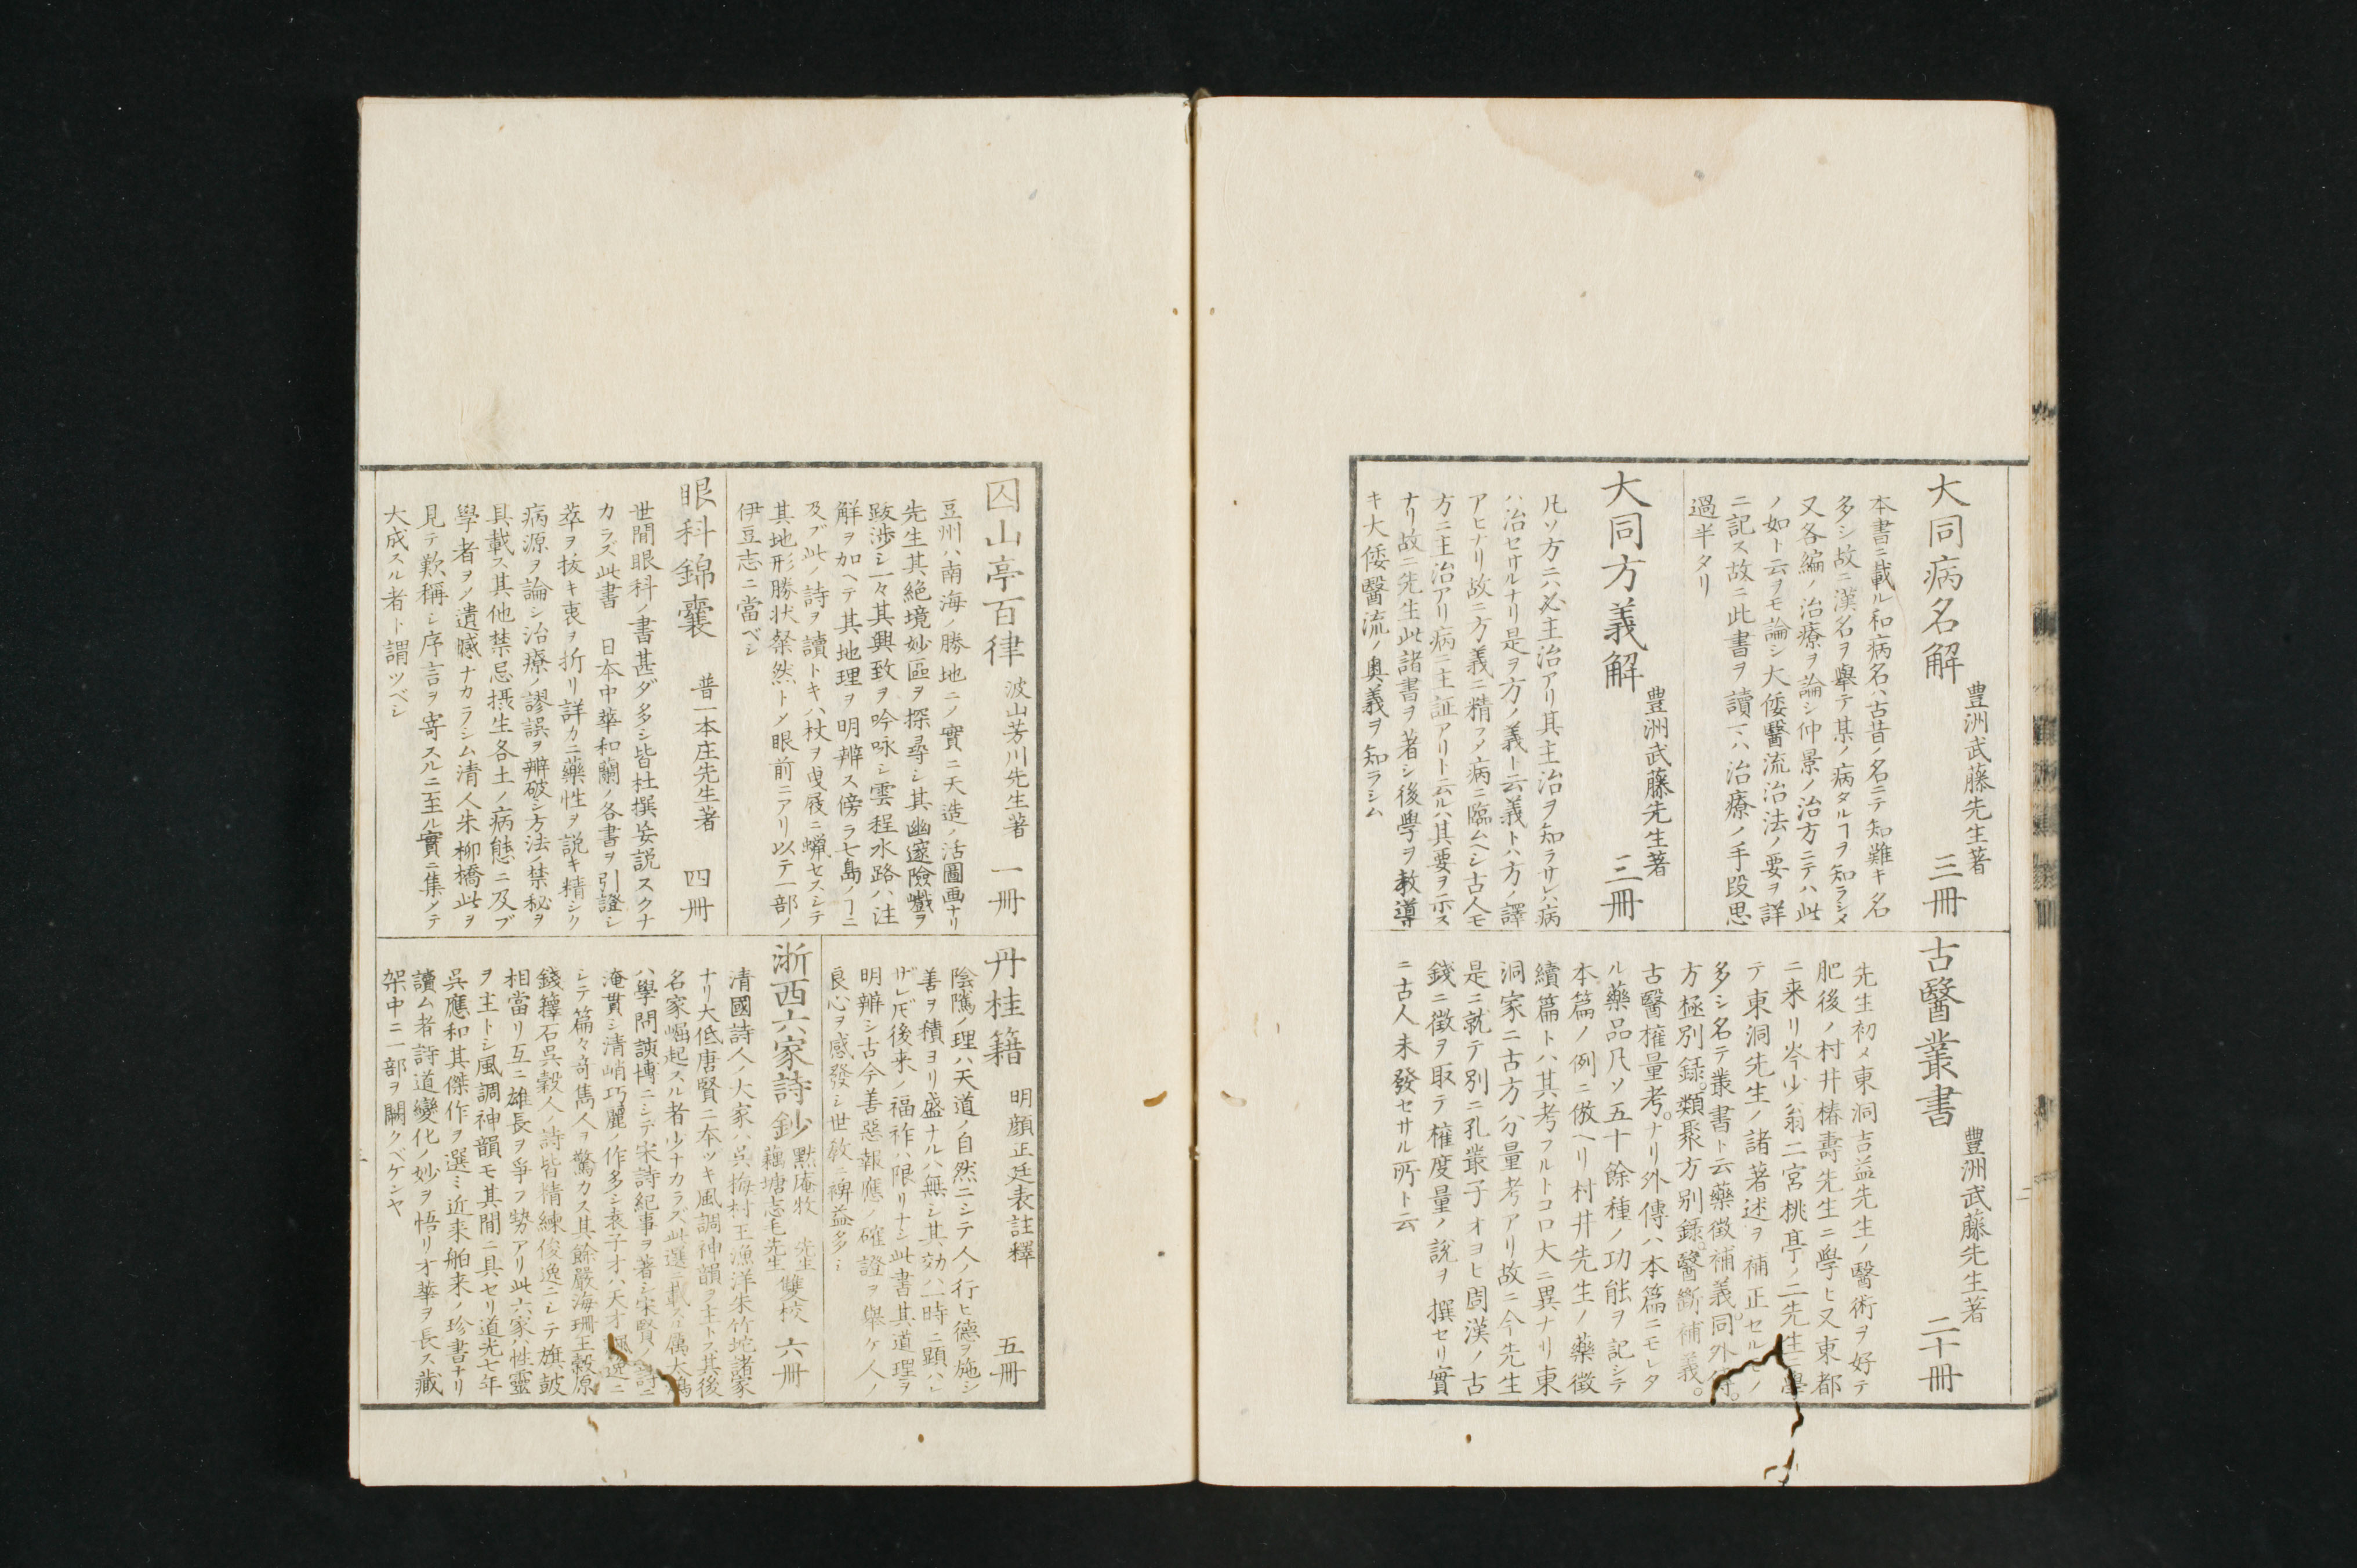 大同病名解
豊洲武藤先生著
三冊
本書ニ載ル和病名ハ古昔ノ名ニテ知難キ名
多シ故ニ漢名ヲ舉テ某ノ病タルヿヲ知ラシメ
又各編ノ治療ヲ論シ仲景ノ治方ニテハ此
ノ如ト云ヲモ論シ大倭醫流治法ノ要ヲ詳
ニ記ス故ニ此書ヲ讀マハ治療ノ手段思
過半タリ
大同方義解
豊洲武藤先生著
三冊
凡ソ方ニハ必主治アリ其主治ヲ知ラサレハ病
ハ治セサルナリ是ヲ方ノ義ト云義トハ方ノ譯
アヒナリ故ニ方義ニ精フメ病ニ臨ムヘシ古人モ
方ニ主治アリ病ニ主証アリト云ルハ其要ヲ示ス
ナリ故ニ先生此諸書ヲ著シ後學ヲ教導
キ大倭醫流ノ奥義ヲ知ラシム
古醫叢書
豊洲武藤先生著
二十冊
先生初メ東洞吉益先生ノ醫術ヲ好テ
肥後ノ村井椿壽先生ニ學ヒ又東都
ニ来リ岑少翁二宮桃亭ノ二先生ニ學
テ東洞先生ノ諸著述ヲ補正セルモノ
多シ名テ叢書ト云藥徴補義。同外傳。
方極別録。類聚方別録。醫斷補義。
古醫權量考。ナリ外傳ハ本篇ニモレタ
ル藥品凡ソ五十餘種ノ功能ヲ記シテ
本篇ノ例ニ倣ヘリ村井先生ノ藥徴
續篇トハ其考フルトコロ大ニ異ナリ東
洞家ニ古方分量考アリ故ニ今先生
是ニ就テ別ニ孔叢子オヨヒ周漢ノ古
錢ニ徴ヲ取テ權度量ノ說ヲ撰セリ實
ニ古人未發セサル所ト云
囚山亭百律
波山芳川先生著
一冊
豆州ハ南海ノ勝地ニメ實ニ天造ノ活圖画ナリ
先生其絶境妙區ヲ探尋シ其幽邃險巇ヲ
跋渉シ一々其興致ヲ吟咏シ雲程水路ハ注
解ヲ加ヘテ其地理ヲ明辨ス傍ラ七島ノヿニ
及ブ此ノ詩ヲ讀トキハ杖ヲ曳屐ニ蝋セスシテ
其地形勝状粲然トメ眼前ニアリ以テ一部ノ
伊豆志ニ當ベシ
眼科錦囊
普一本庄先生著
四冊
世間眼科ノ書甚ダ多シ皆杜撰妄説スクナ
カラズ此書 日本中華和蘭ノ各書ヲ引證シ
萃ヲ抜キ衷ヲ折リ詳カニ藥性ヲ説キ精シク
病源ヲ論シ治療ノ謬誤ヲ辨破シ方法ノ禁秘ヲ
具載ス其他禁忌摂生各土ノ病態ニ及ブ
學者ヲノ遺憾ナカラシム清人朱柳橋此ヲ
見テ歎稱シ序言ヲ寄スルニ至ル實ニ集メテ
大成スル者ト謂ツベシ
丹桂籍
明顔正廷表註釋
五冊
陰隲ノ理ハ天道ノ自然ニシテ人ノ行ヒ徳ヲ施シ
善ヲ積ヨリ盛ナルハ無シ其効ハ一時ニ顕ハレ
ザレ𪜈後来ノ福祚ハ限リナシ此書其道理ヲ
明辨シ古今善惡報應ノ確證ヲ舉ケ人ノ
良心ヲ感發シ世教ニ裨益多シ
浙西六家詩鈔
黙庵牧
藕塘志毛先生
先生
雙校
六冊
清國詩人ノ大家ハ呉梅村王漁洋朱竹垞諸家
ナリ大低唐賢ニ本ヅキ風調神韻ヲ主トス其後
名家崛起スル者少ナカラズ此選ニ載スル厲大鴻
ハ學問該博ニシテ宋詩紀事ヲ著シ宋賢ノ詩ニ
淹貫シ清峭巧麗ノ作多シ袁子才ハ天才逸ニ
シテ篇々奇雋人ヲ驚カス其餘嚴海珊王穀原
錢籜石呉穀人ノ詩皆精練俊逸ニシテ旗鼓
相當リ互ニ雄長ヲ爭フ勢アリ此六家ハ性靈
ヲ主トシ風調神韻モ其間ニ具セリ道光七年
呉應和其傑作ヲ選ミ近来舶来ノ珍書ナリ
讀ム者詩道變化ノ妙ヲ悟リ才華ヲ長ス藏
架中ニ一部ヲ闕クベケンヤ